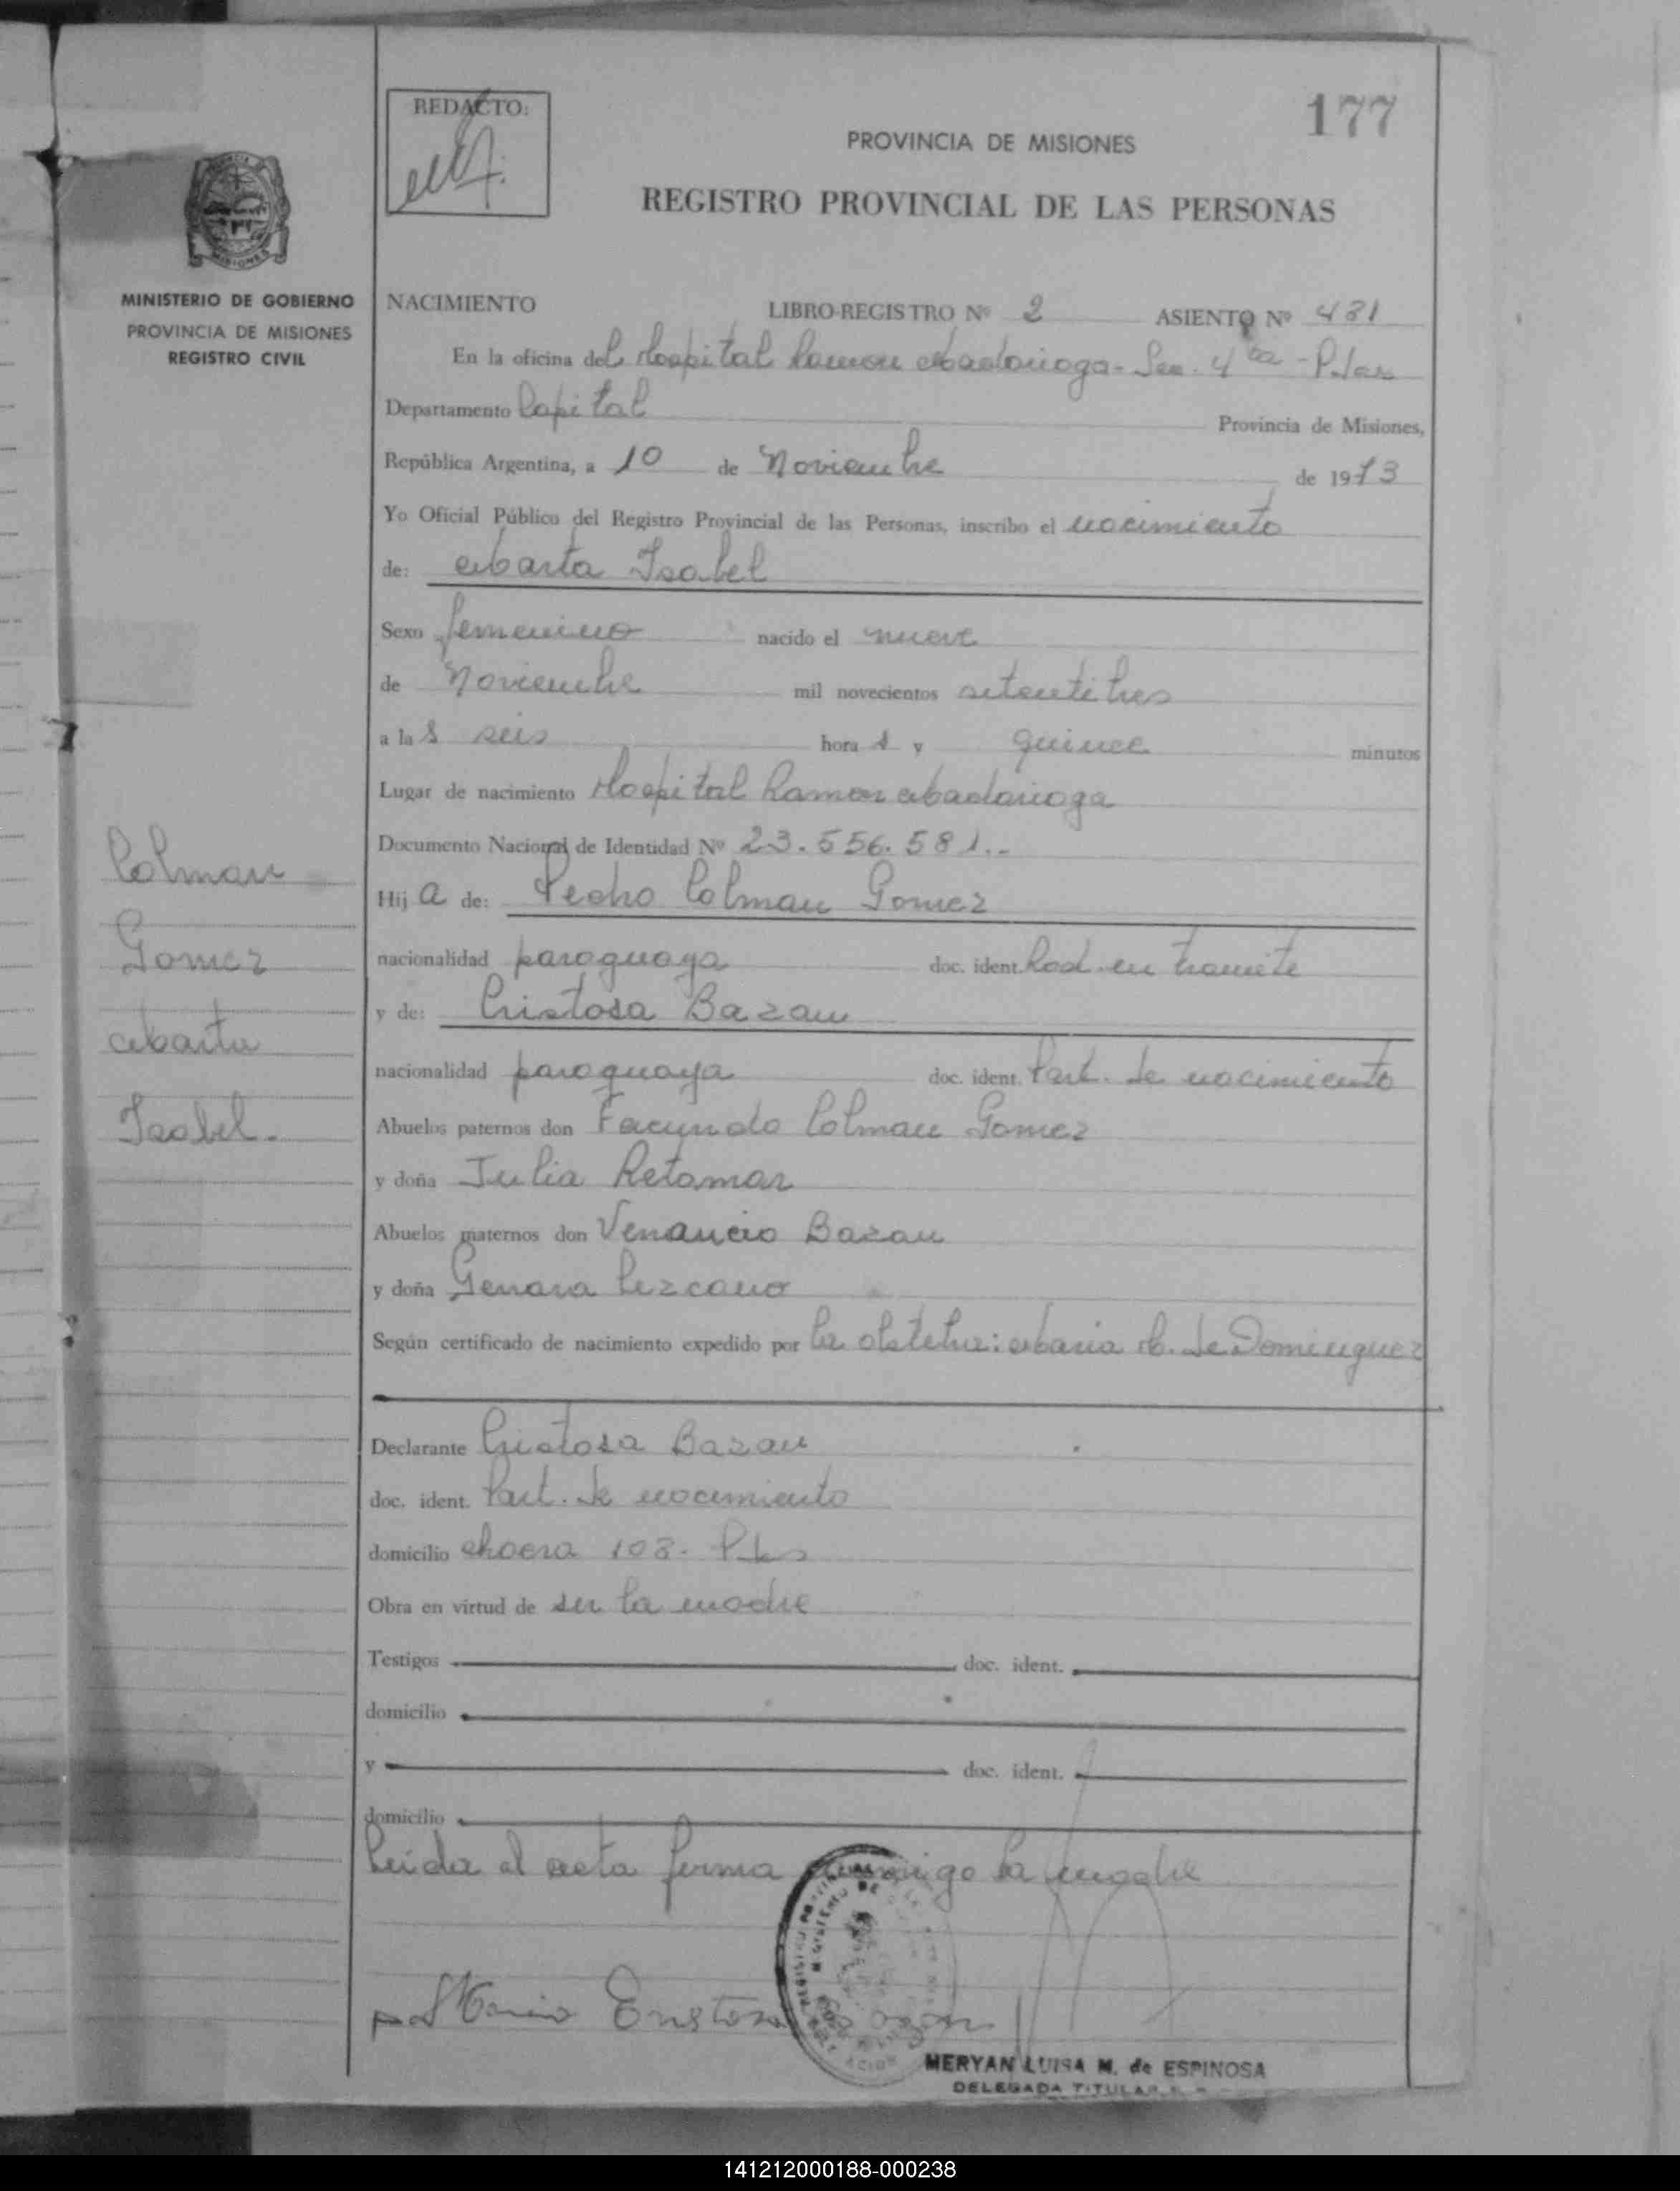 177
REDACTO:
PROVINCIA DE MISIONES
REGISTRO PROVINCIAL DE LAS PERSONAS
MINISTERIO DE GOBIERNO
PROVINCIA DE MISIONES
REGISTRO CIVIL
NACIMIENTO LIBRO-REGISTRO Nº 2 ASIENTO Nº 431
En la oficina del Hospital Ramon Madariaga - Sec. 4ta - P.das
Departamento Capital Provincia de Misiones,
República Argentina, a 10 de Noviembre de 1973
Yo Oficial Público del Registro Provincial de las Personas, inscribo el nacimiento
de: Marta Isabel
Sexo femenino nacido el nueve
de Noviembre mil novecientos setentitres
a las seis horas y quince minutos
Lugar de nacimiento Hospital Ramon Madariaga
Documento Nacional de Identidad Nº 23.556.581.-
Hija de: Pedro Colman Gomez
nacionalidad paraguaya doc. ident. Rad. en tramite
y de: Cristosa Bazan
nacionalidad paraguaya doc. ident. Part. de nacimiento
Abuelos paternos don Facundo Colman Gomez
y doña Julia Retamar
Abuelos maternos don Venancio Bazan
y doña Genara Lezcano
Según certificado de nacimiento expedido por la obstetra: Maria H. de Dominguez
Declarante Cristosa Bazan
doc. ident. Part. de nacimiento
domicilio chacra 103 - P.das
Obra en virtud de ser la madre
Testigos doc. ident.
domicilio
y doc. ident.
domicilio
Leida el acta firma conmigo la madre
Colman
Gomez
Marta
Isabel.
MERYAN LUISA M. de ESPINOSA
DELEGADA TITULAR
141212000188-000238